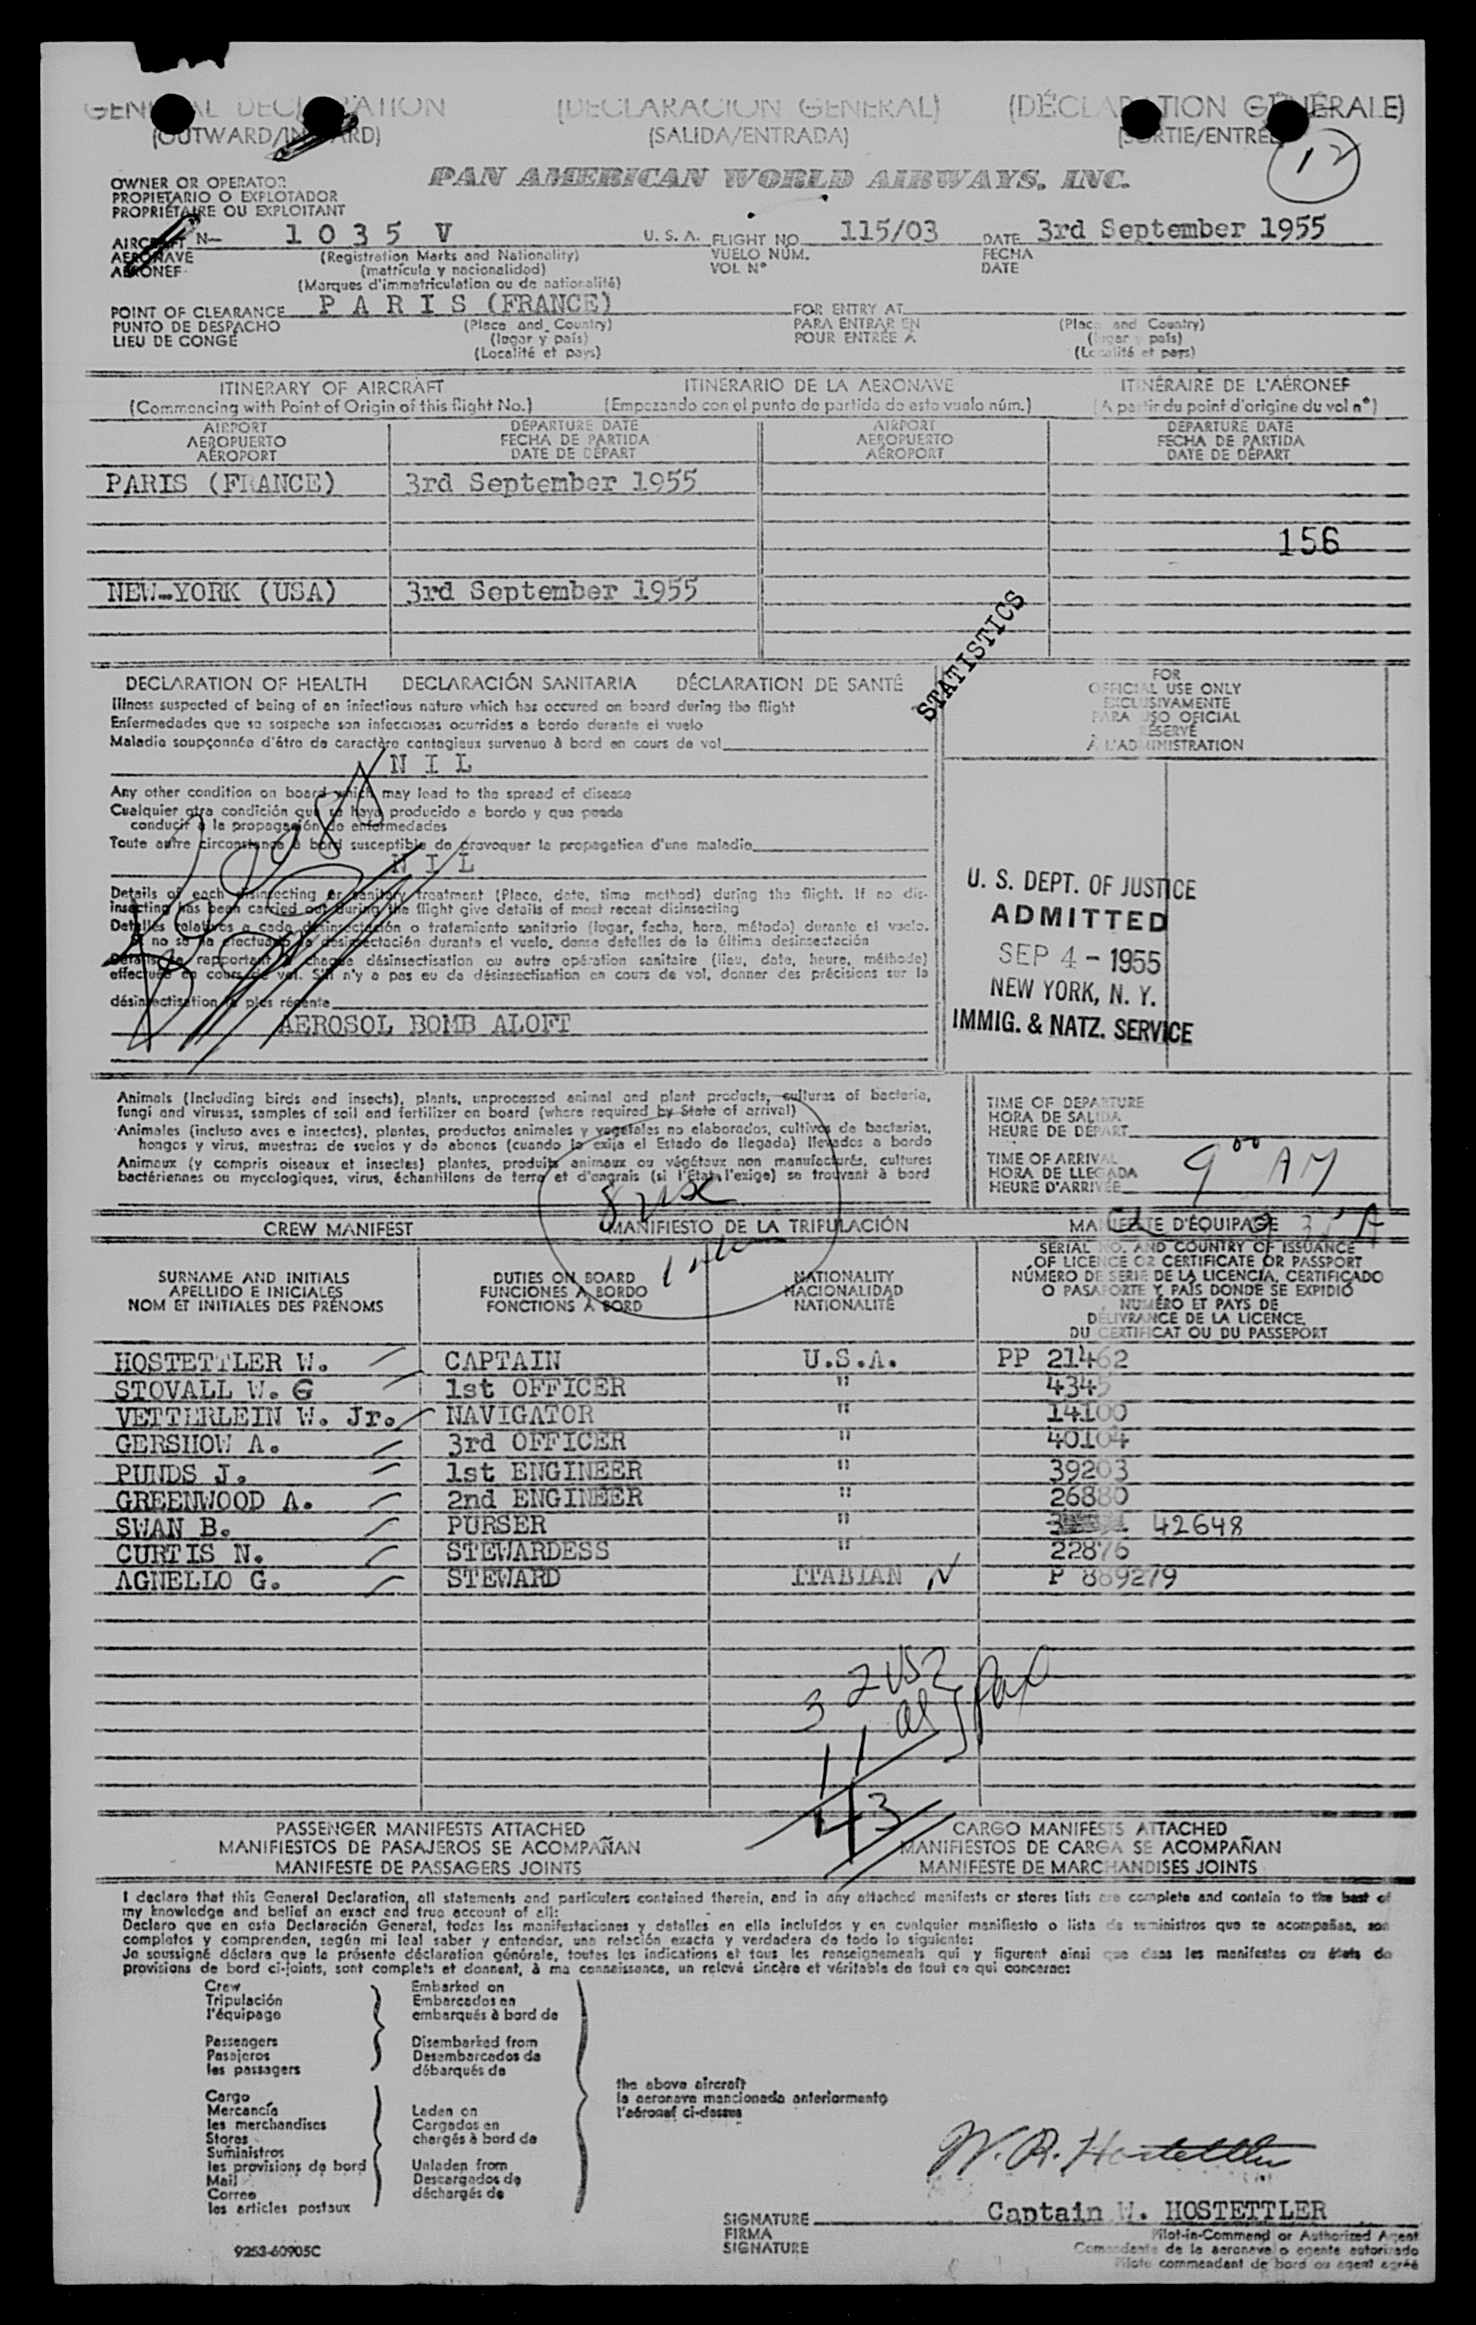 GENERAL DECLARATION (DECLARACION GENERAL) (DÉCLARATION GÉNÉRALE)
(OUTWARD/INWARD) (SALIDA/ENTRADA) (SORTIE/ENTRÉE)
12
OWNER OR OPERATOR PAN AMERICAN WORLD AIRWAYS, INC.
PROPIETARIO O EXPLOTADOR
PROPRIÉTAIRE OU EXPLOITANT
AIRCRAFT N- 1035 V U. S. A. FLIGHT NO. 115/03 DATE 3rd September 1955
AERONAVE (Registration Marks and Nationality) VUELO NÚM. FECHA
AÉRONEF (matrícula y nacionalidad) VOL N° DATE
(Marques d'immatriculation ou de nationalité)
POINT OF CLEARANCE P A R I S (FRANCE) FOR ENTRY AT
PUNTO DE DESPACHO (Place and Country) PARA ENTRAR EN (Place and Country)
LIEU DE CONGÉ (lugar y país) POUR ENTRÉE À (lugar y país)
(Localité et pays) (Localité et pays)
ITINERARY OF AIRCRAFT ITINERARIO DE LA AERONAVE ITINÉRAIRE DE L'AÉRONEF
(Commencing with Point of Origin of this flight No.) (Empezando con el punto de partida de este vuelo núm.) (A partir du point d'origine du vol n°)
AIRPORT DEPARTURE DATE AIRPORT DEPARTURE DATE
AEROPUERTO FECHA DE PARTIDA AEROPUERTO FECHA DE PARTIDA
AÉROPORT DATE DE DÉPART AÉROPORT DATE DE DÉPART
PARIS (FRANCE) 3rd September 1955
156
NEW-YORK (USA) 3rd September 1955
STATISTICS
DECLARATION OF HEALTH DECLARACIÓN SANITARIA DÉCLARATION DE SANTÉ
Illness suspected of being of an infectious nature which has occured on board during the flight
Enfermedades que se sospeche son infecciosas ocurridas a bordo durante el vuelo
Maladie soupçonnée d'être de caractère contagieux survenue à bord en cours de vol
N I L
Any other condition on board which may lead to the spread of disease
Cualquier otra condición que se haya producido a bordo y que pueda
conducir a la propagación de enfermedades
Toute autre circonstance à bord susceptible de provoquer la propagation d'une maladie
N I L
Details of each disinsecting or sanitary treatment (Place, date, time method) during the flight. If no dis-
insecting has been carried out during the flight give details of most recent disinsecting
Detalles relativos a cada desinsectación o tratamiento sanitario (lugar, fecha, hora, método) durante el vuelo.
Si no se ha efectuado la desinsectación durante el vuelo, dense detalles de la última desinsectación
Détails se rapportant à chaque désinsectisation ou autre opération sanitaire (lieu, date, heure, méthode)
effectuée en cours de vol. S'il n'y a pas eu de désinsectisation en cours de vol, donner des précisions sur la
désinsectisation la plus récente
AEROSOL BOMB ALOFT
FOR
OFFICIAL USE ONLY
EXCLUSIVAMENTE
PARA USO OFICIAL
RÉSERVÉ
À L'ADMINISTRATION
U. S. DEPT. OF JUSTICE
ADMITTED
SEP 4 - 1955
NEW YORK, N. Y.
IMMIG. & NATZ. SERVICE
Animals (Including birds and insects), plants, unprocessed animal and plant products, cultures of bacteria,
fungi and viruses, samples of soil and fertilizer on board (where required by State of arrival)
Animales (incluso aves e insectos), plantas, productos animales y vegetales no elaborados, cultivos de bacterias,
hongos y virus, muestras de suelos y de abonos (cuando lo exija el Estado de llegada) llevados a bordo
Animaux (y compris oiseaux et insectes) plantes, produits animaux ou végétaux non manufacturés, cultures
bactériennes ou mycologiques, virus, échantillons de terre et d'engrais (si l'État l'exige) se trouvant à bord
TIME OF DEPARTURE
HORA DE SALIDA
HEURE DE DÉPART
TIME OF ARRIVAL
HORA DE LLEGADA 9 00 AM
HEURE D'ARRIVÉE
CREW MANIFEST MANIFIESTO DE LA TRIPULACIÓN MANIFESTE D'ÉQUIPAGE
SURNAME AND INITIALS
APELLIDO E INICIALES
NOM ET INITIALES DES PRÉNOMS
DUTIES ON BOARD
FUNCIONES A BORDO
FONCTIONS À BORD
NATIONALITY
NACIONALIDAD
NATIONALITÉ
SERIAL NO. AND COUNTRY OF ISSUANCE
OF LICENCE OR CERTIFICATE OR PASSPORT
NÚMERO DE SERIE DE LA LICENCIA, CERTIFICADO
O PASAPORTE Y PAÍS DONDE SE EXPIDIÓ
NUMÉRO ET PAYS DE
DÉLIVRANCE DE LA LICENCE,
DU CERTIFICAT OU DU PASSEPORT
HOSTETTLER W. CAPTAIN U.S.A. PP 21462
STOVALL W. G 1st OFFICER " 4345
VETTERLEIN W. Jr. NAVIGATOR " 14100
GERSHOW A. 3rd OFFICER " 40104
PUNDS J. 1st ENGINEER " 39203
GREENWOOD A. 2nd ENGINEER " 26880
SWAN B. PURSER " 42648
CURTIS N. STEWARDESS " 22876
AGNELLO G. STEWARD ITALIAN N P 889279
3 2
11
43
PASSENGER MANIFESTS ATTACHED CARGO MANIFESTS ATTACHED
MANIFIESTOS DE PASAJEROS SE ACOMPAÑAN MANIFIESTOS DE CARGA SE ACOMPAÑAN
MANIFESTE DE PASSAGERS JOINTS MANIFESTE DE MARCHANDISES JOINTS
I declare that this General Declaration, all statements and particulars contained therein, and in any attached manifests or stores lists are complete and contain to the best of
my knowledge and belief an exact and true account of all:
Declaro que en esta Declaración General, todas las manifestaciones y detalles en ella incluídos y en cualquier manifiesto o lista de suministros que se acompañan, son
completos y comprenden, según mi leal saber y entender, una relación exacta y verdadera de todo lo siguiente:
Je soussigné déclare que la présente déclaration générale, toutes les indications et tous les renseignements qui y figurent ainsi que dans les manifestes ou états de
provisions de bord ci-joints, sont complets et donnent, à ma connaissance, un relevé sincère et véritable de tout ce qui concerne:
Crew Embarked on
Tripulación Embarcados en
l'équipage embarqués à bord de
Passengers Disembarked from
Pasajeros Desembarcados de
les passagers débarqués de
the above aircraft
la aeronave mencionada anteriormente
l'aéronef ci-dessus
Cargo
Mercancía Laden on
les merchandises Cargados en
Stores chargés à bord de
Suministros
les provisions de bord Unladen from
Mail Descargados de
Correo déchargés de
les articles postaux
W. R. Hostettler
SIGNATURE Captain W. HOSTETTLER
FIRMA Pilot-in-Command or Authorized Agent
SIGNATURE Comandante de la aeronave o agente autorizado
Pilote commandant de bord ou agent agréé
9253-60905C